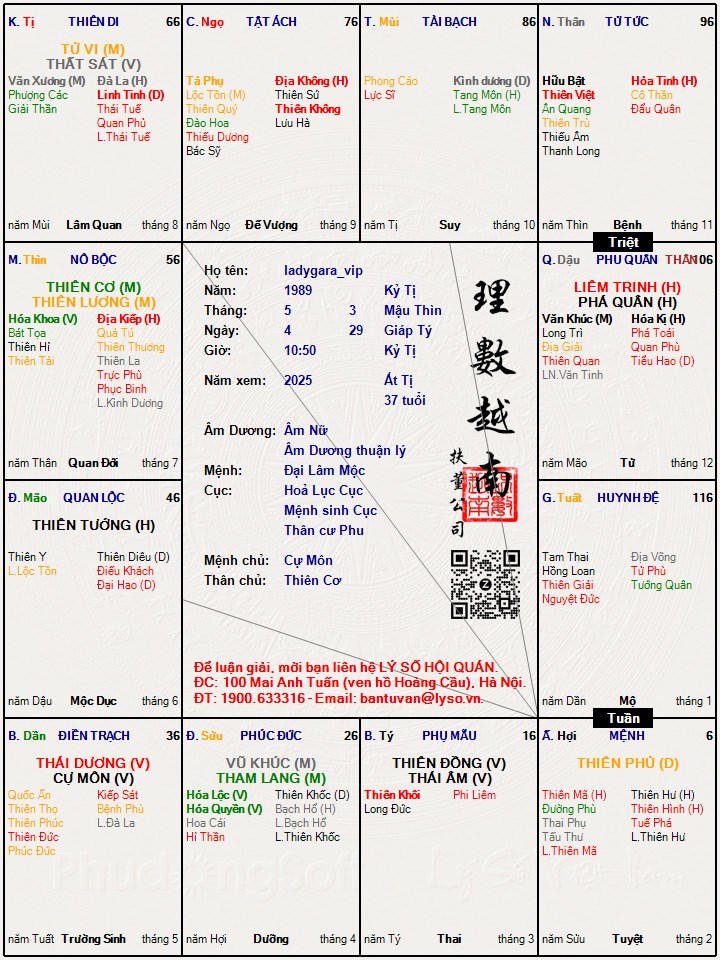 K. Tị THIÊN DI 66
TỬ VI (M)
THẤT SÁT (V)
Văn Xương (M) Đà La (H)
Phượng Các Linh Tinh (D)
Giải Thần Thái Tuế
Quan Phủ
L.Thái Tuế
năm Mùi Lâm Quan tháng 8
C. Ngọ TẬT ÁCH 76
Tả Phụ Địa Không (H)
Lộc Tồn (M) Thiên Sứ
Thiên Quý Thiên Không
Đào Hoa Lưu Hà
Thiếu Dương
Bác Sỹ
năm Ngọ Đế Vượng tháng 9
T. Mùi TÀI BẠCH 86
Phong Cáo Kình dương (D)
Lực Sĩ Tang Môn (H)
L.Tang Môn
năm Tị Suy tháng 10
N. Thân TỬ TỨC 96
Hữu Bật Hỏa Tinh (H)
Thiên Việt Cô Thần
Ân Quang Đẩu Quân
Thiên Trù
Thiếu Âm
Thanh Long
năm Thìn Bệnh tháng 11
Triệt
M. Thìn NÔ BỘC 56
THIÊN CƠ (M)
THIÊN LƯƠNG (M)
Hóa Khoa (V) Địa Kiếp (H)
Bát Tọa Quả Tú
Thiên Hỉ Thiên Thương
Thiên Tài Thiên La
Trực Phù
Phục Binh
L.Kình Dương
năm Thân Quan Đới tháng 7
Họ tên: ladygara_vip
Năm: 1989 Kỷ Tị
Tháng: 5 3 Mậu Thìn
Ngày: 4 29 Giáp Tý
Giờ: 10:50 Kỷ Tị
Năm xem: 2025 Ất Tị
37 tuổi
Âm Dương: Âm Nữ
Âm Dương thuận lý
Mệnh: Đại Lâm Mộc
Cục: Hoả Lục Cục
Mệnh sinh Cục
Thân cư Phu
Mệnh chủ: Cự Môn
Thân chủ: Thiên Cơ
理數越南
扶董公司
Z
Để luận giải, mời bạn liên hệ LÝ SỐ HỘI QUÁN.
ĐC: 100 Mai Anh Tuấn (ven hồ Hoàng Cầu), Hà Nội.
ĐT: 1900.633316 - Email: bantuvan@lyso.vn.
Q. Dậu PHU QUÂN THÂN 106
LIÊM TRINH (H)
PHÁ QUÂN (H)
Văn Khúc (M) Hóa Kị (H)
Long Trì Phá Toái
Địa Giải Quan Phù
Thiên Quan Tiểu Hao (D)
LN.Văn Tinh
năm Mão Tử tháng 12
Đ. Mão QUAN LỘC 46
THIÊN TƯỚNG (H)
Thiên Y Thiên Diêu (D)
L.Lộc Tồn Điếu Khách
Đại Hao (D)
năm Dậu Mộc Dục tháng 6
G. Tuất HUYNH ĐỆ 116
Tam Thai Địa Võng
Hồng Loan Tử Phù
Thiên Giải Tướng Quân
Nguyệt Đức
năm Dần Mộ tháng 1
Tuần
B. Dần ĐIỀN TRẠCH 36
THÁI DƯƠNG (V)
CỰ MÔN (V)
Quốc Ấn Kiếp Sát
Thiên Thọ Bệnh Phù
Thiên Phúc L.Đà La
Thiên Đức
Phúc Đức
năm Tuất Trường Sinh tháng 5
Đ. Sửu PHÚC ĐỨC 26
VŨ KHÚC (M)
THAM LANG (M)
Hóa Lộc (V) Thiên Khốc (D)
Hóa Quyền (V) Bạch Hổ (H)
Hoa Cái L.Bạch Hổ
Hỉ Thần L.Thiên Khốc
năm Hợi Dưỡng tháng 4
B. Tý PHỤ MẪU 16
THIÊN ĐỒNG (V)
THÁI ÂM (V)
Thiên Khôi Phi Liêm
Long Đức
năm Tý Thai tháng 3
Ấ. Hợi MỆNH 6
THIÊN PHỦ (D)
Thiên Mã (H) Thiên Hư (H)
Đường Phù Thiên Hình (H)
Thai Phụ Tuế Phá
Tấu Thư L.Thiên Hư
L.Thiên Mã
năm Sửu Tuyệt tháng 2